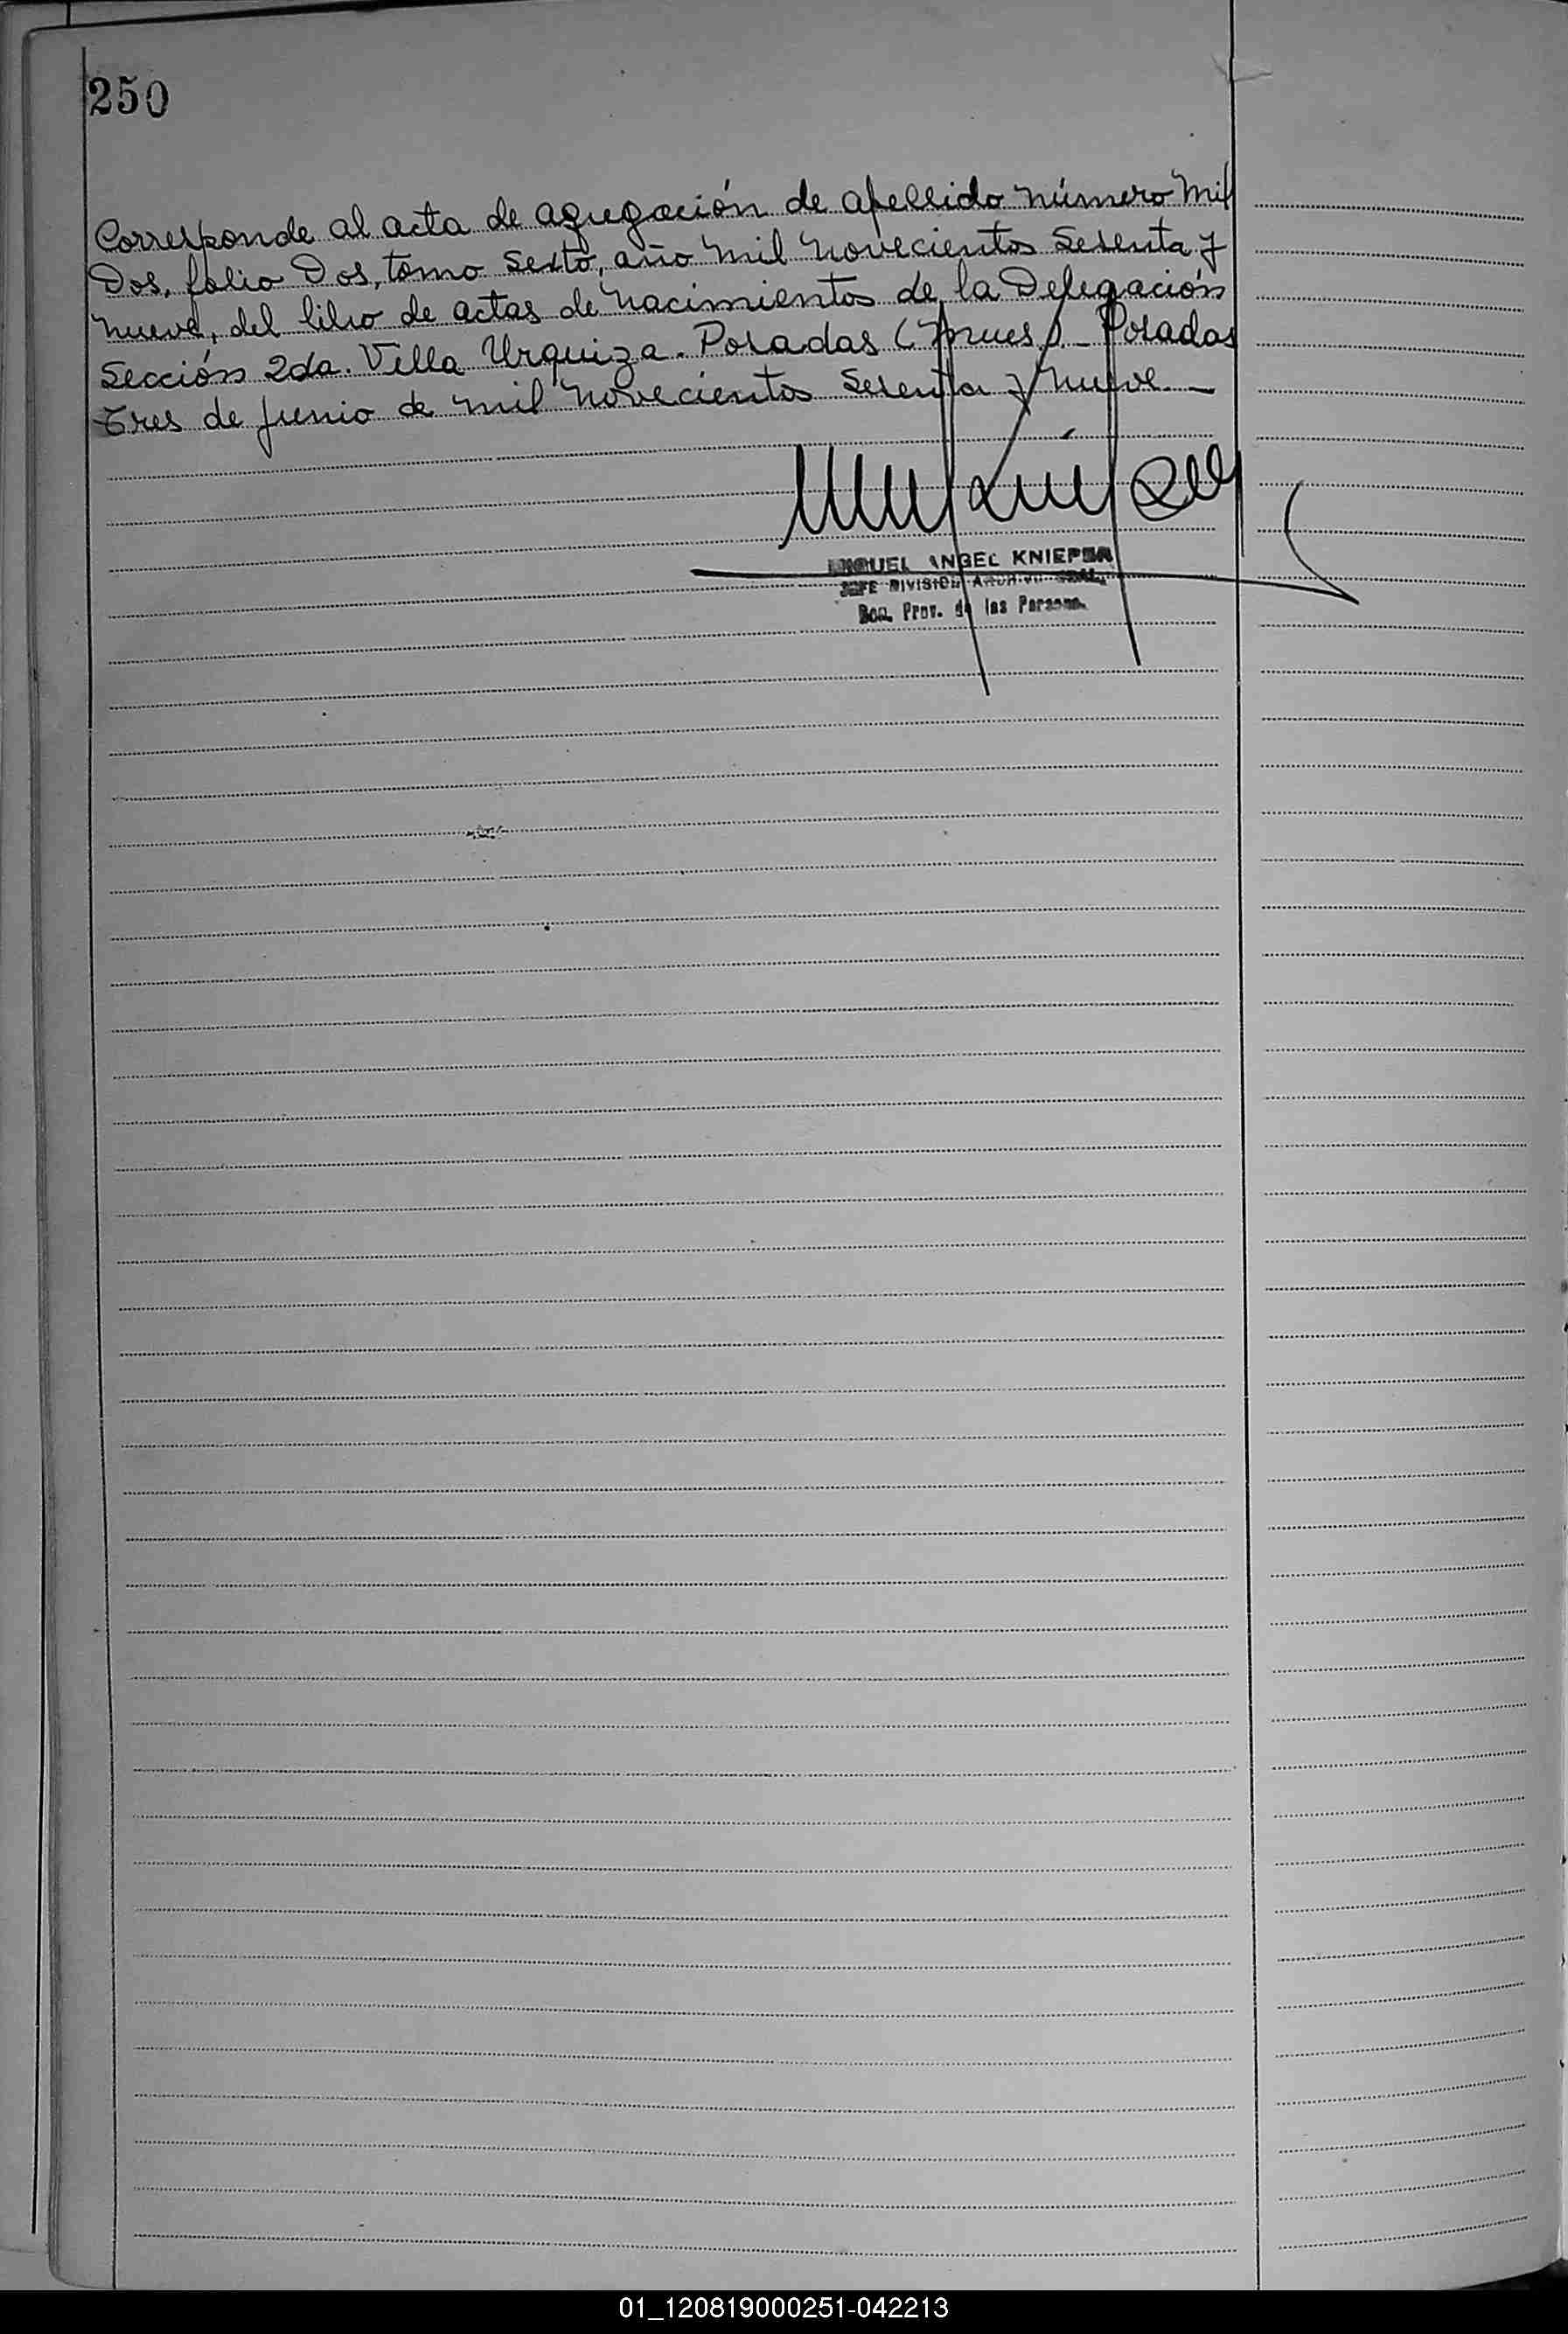 250
Corresponde al acta de agregación de apellido número Mil
Dos, folio Dos, tomo sexto, año mil novecientos Setenta y
nueve, del libro de actas de nacimientos de la Delegación
Sección 2da. Villa Urquiza. Posadas (Mnes). Posadas
Tres de junio de mil novecientos Setenta y nueve.
MIGUEL ANGEL KNIEPER
JEFE DIVISION ARCHIVO GRAL.
Prov. de las Persona.
01_120819000251-042213